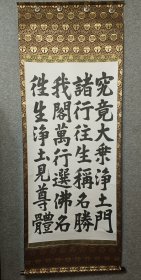 究竟大乗浄土門
諸行往生稱名勝
我閣萬行選佛名
徃生浄土見尊體